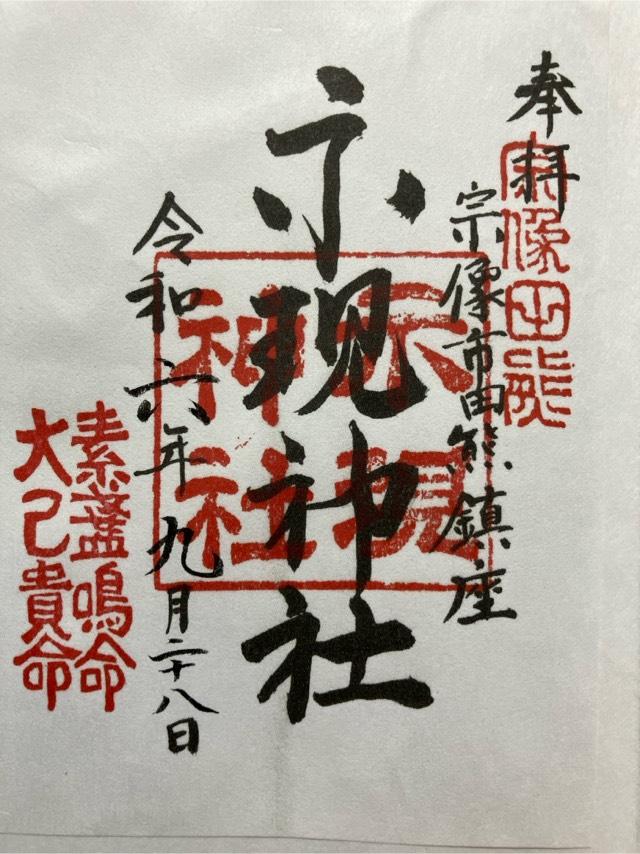 奉拝
宗像田熊
宗像市田熊鎮座
示現神社
示現
神社
令和六年九月二十八日
素盞嗚命
大己貴命